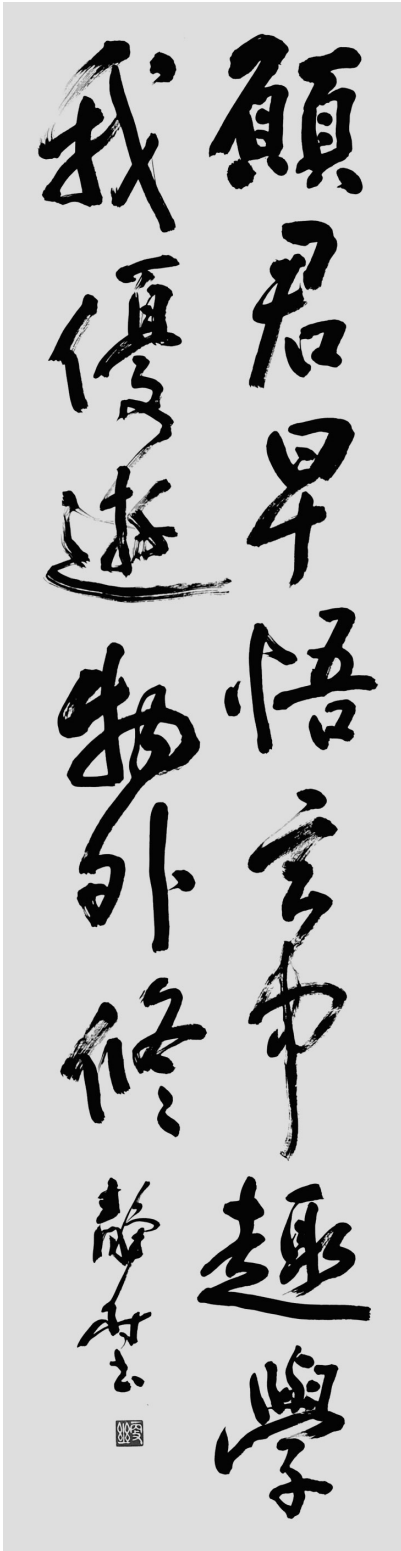 願君早悟玄中趣學
我優遊物外修
靜村書